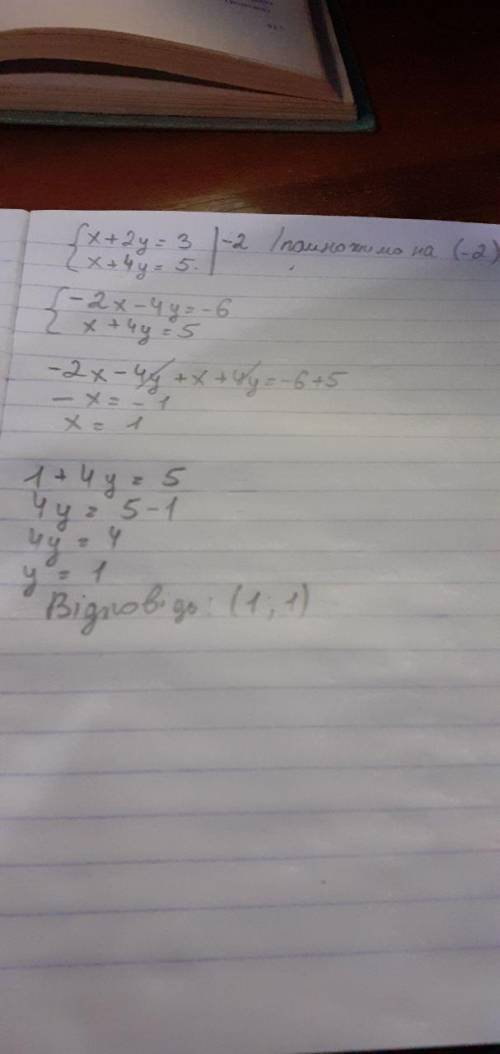 {x+2y=3 |-2 /помножимо на (-2)
{x+4y=5.
{-2x-4y=-6
{x+4y=5
-2x-4y+x+4y=-6+5
-x=-1
x=1
1+4y=5
4y=5-1
4y=4
y=1
Відповідь: (1;1)